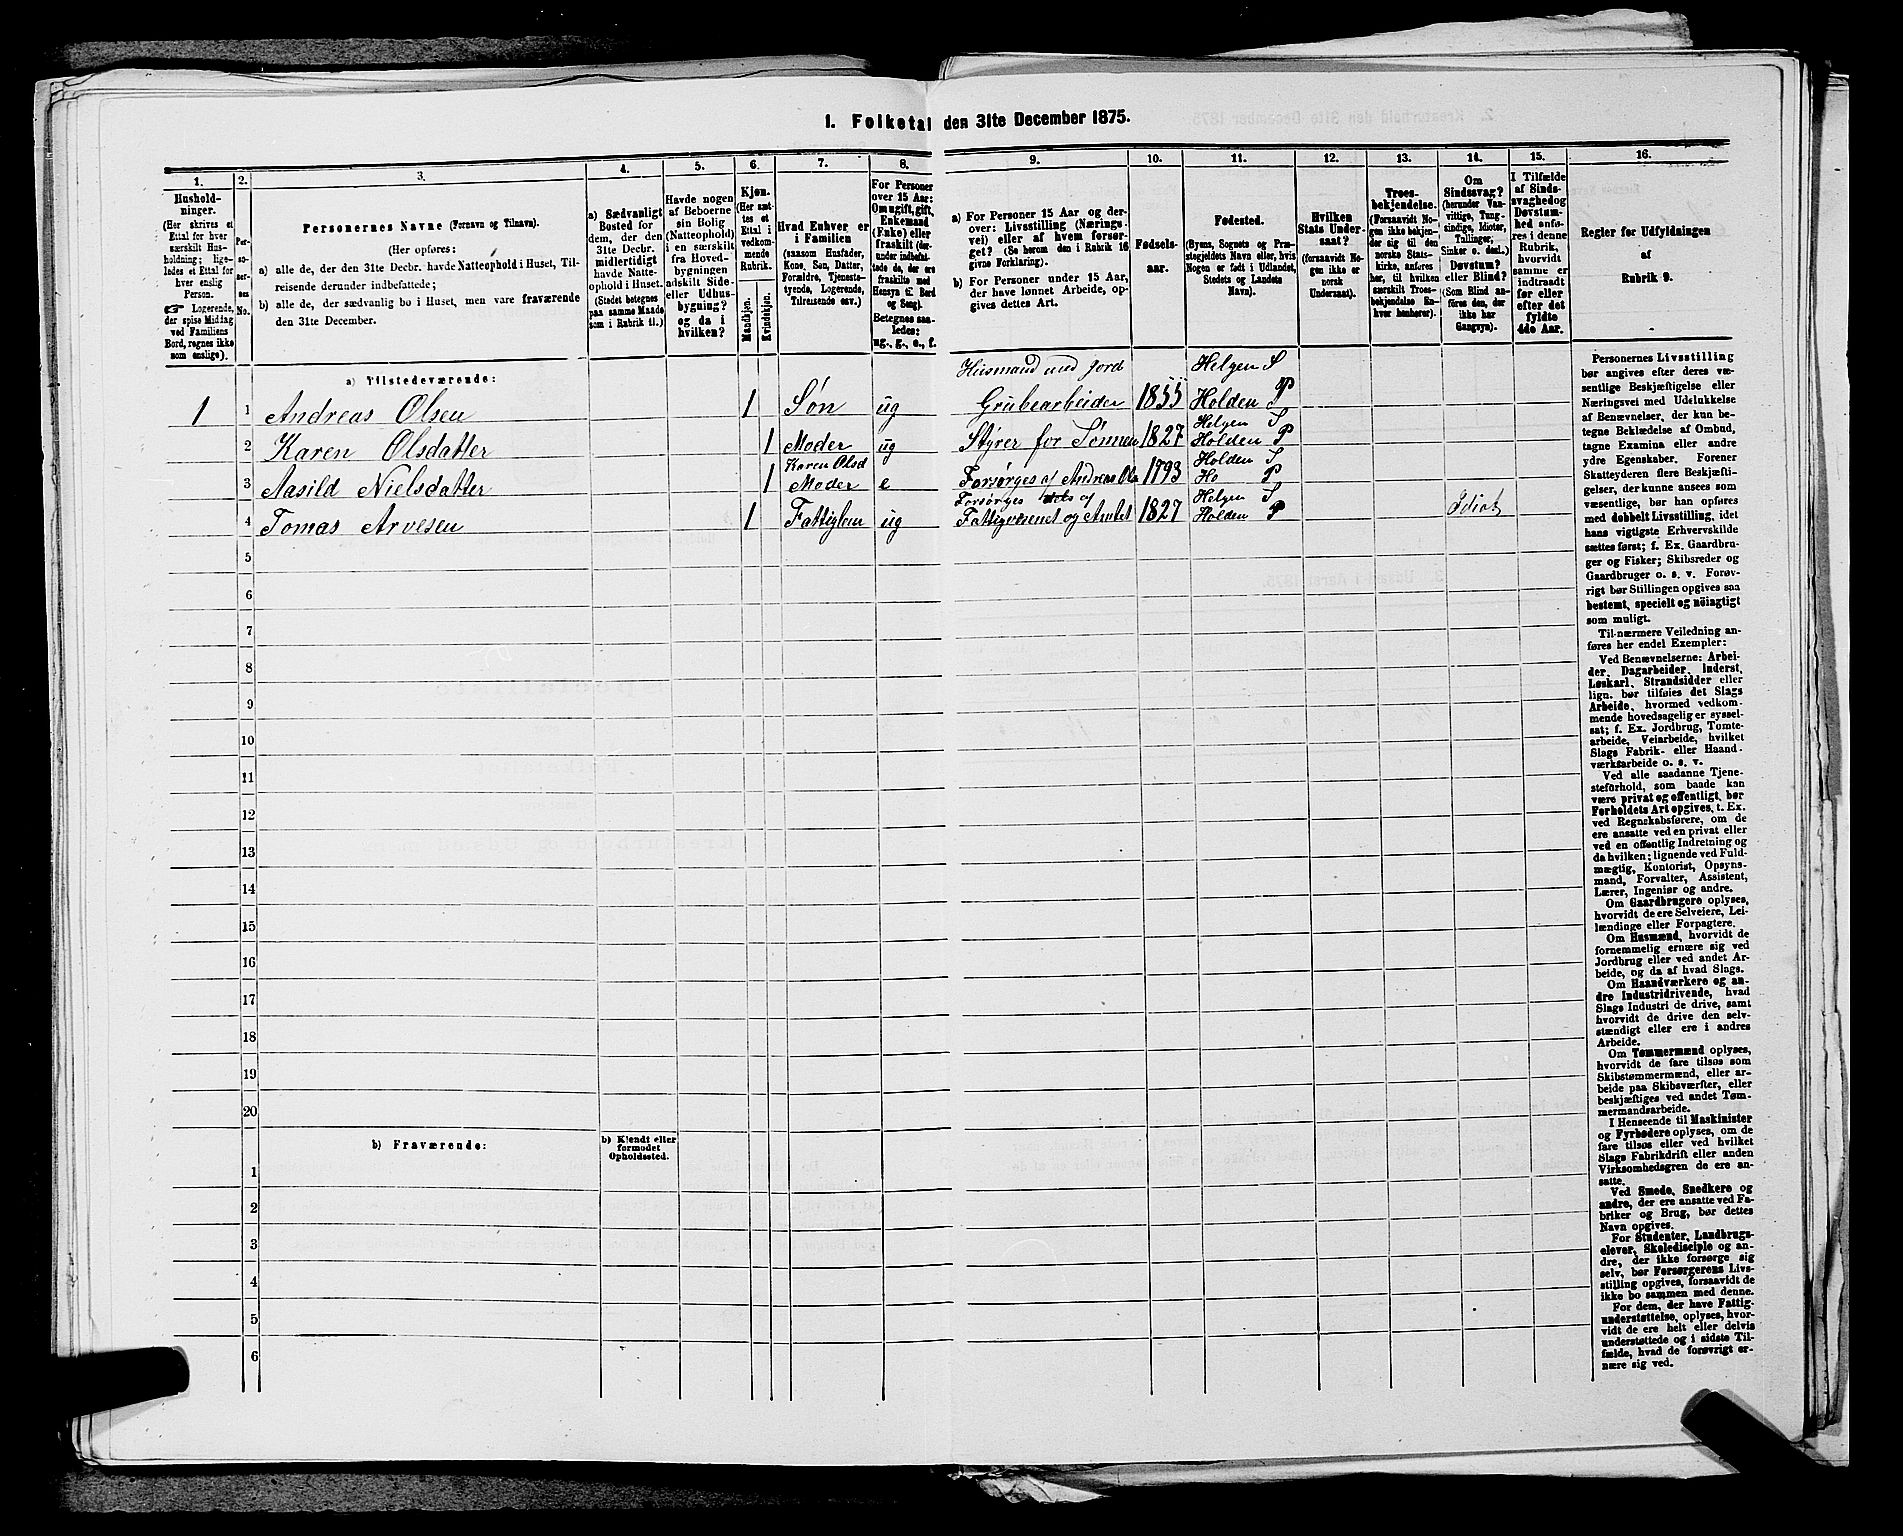 1. Folketal den 31te December 1875.
1.
2.
3.
4.
5.
6.
7.
8.
9.
10.
11.
12.
13.
14.
15.
16.
Hushold-
ninger.
(Her skrives et
Ettal for hver
særskilt Hus-
holdning; lige-
ledes et Ettal for
hver enslig
Person.
☞ Logerende,
der spise Middag
ved Familiens
Bord, regnes ikke
som enslige).
Per-
so-
ner-
nes
No.
Personernes Navne (Fornavn og Tilnavn).
(Her opføres:
a) alle de, der den 31te Decbr. havde Natteophold i Huset, Til-
reisende derunder indbefattede;
b) alle de, der sædvanlig bo i Huset, men vare fraværende
den 31te December.
a) Sædvanligt
Bosted for
dem, der den
31te Decbr.
midlertidigt
havde Natte-
ophold i Huset.
(Stedet betegnes
paa samme Maade
som i Rubrik 11.)
Havde nogen
af Beboerne
sin Bolig
(Natteophold)
i en særskilt
fra Hoved-
bygningen
adskilt Side-
eller Udhus-
bygning?
og da i
hvilken?
Kjøn.
(Her sæt-
tes et
Ettal i
vedkom-
mende
Rubrik.
Mandkjøn.
Kvindekjøn.
Hvad Enhver er
i Familien
(saasom Husfader,
Kone, Søn, Datter,
Forældre, Tjeneste-
tyende, Logerende,
Tilreisende osv.)
For Personer
over 15 Aar:
Om ugift, gift,
Enkemand
(Enke) eller
fraskilt (der-
under indbefat-
tede de, der ere
fraskilte med
Hensyn til Bord
og Seng).
Betegnes saa-
ledes:
ug., g., e., f.
a) For Personer 15 Aar og der-
over: Livsstilling (Nærings-
vei) eller af hvem forsør-
get? (Se herom den i Rubrik 16
givne Forklaring).
b) For Personer under 15 Aar,
der have lønnet Arbeide, op-
gives dettes Art.
Fødsels-
aar.
Fødested.
(Byens, Sognets og Præ-
stegjeldets Navn eller, hvis
Nogen er født i Udlandet,
Stedets og Landets
Navn).
Hvilken
Stats Under-
saat?
(forsaavidt No-
gen ikke er
norsk
Undersaat).
Troes-
bekjendelse.
(Forsaavidt No-
gen ikke bekjen-
der sig til den
norske Stats-
kirke, anføres
her, til hvilken
særskilt Troes-
bekjendelse En-
hver henhører).
Om
Sindssvag?
(herunder Van-
vittige, Tung-
sindige, Idioter,
Tullinger,
Sinker o. desl.)
Døvstum?
eller Blind?
(Som Blind an-
føres den, der
ikke har
Gangsyn).
I Tilfælde
af Sinds-
svaghed og
Døvstum-
hed anfø-
res i denne
Rubrik,
hvorvidt
samme er
indtraadt
før eller
efter det
fyldte
4de Aar.
Regler for Udfyldningen
af
Rubrik 9.
a) Tilstedeværende:
Husmand med Jord Helgen S
1 1 Andreas Olsen 1 Søn ug Grubearbeider 1855 Holden P
Helgen S
2 Karen Olsdatter 1 Moder ug Styrer for Sønnen 1827 Holden P
Karen Olsd Holden S
3 Aasild Nielsdatter 1 Moder e Forsørges af Andreas Ols 1793 Ho P
Forsørges af Helgen S
4 Tomas Arvesen 1 Fattiglem ug Fattigvæsenet og Amtet 1827 Holden P Idiot
5
6
7
8
9
10
11
12
13
14
15
16
17
18
19
20
b) Fraværende:
b) Kjendt eller
formodet
Opholdssted.
1
2
3
4
5
6
Personernes Livsstilling
bør angives efter deres væ-
sentlige Beskjæftigelse eller
Næringsvei med Udelukkelse
af Benævnelser, der kun be-
tegne Beklædelse af Ombud,
tagne Examina eller andre
ydre Egenskaber. Forener
Skatteyderen flere Beskjæfti-
gelser, der kunne ansees som
væsentlige, bør han opføres
med dobbelt Livsstilling, idet
hans vigtigste Erhvervskilde
sættes først; f. Ex. Gaardbru-
ger og Fisker; Skibsreder og
Gaardbruger o. s. v. Forøv-
rigt bør Stillingen opgives saa
bestemt, specielt og nøiagtigt
som muligt.
Til nærmere Veiledning an-
føres her endel Exempler:
Ved Benævnelserne: Arbei-
der, Dagarbeider, Inderst,
Løskarl, Strandsidder eller
lign. bør tilføies det Slags
Arbeide, hvormed vedkom-
mende hovedsagelig er syssel-
sat; f. Ex. Jordbrug, Tomte-
arbeide, Veiarbeide, hvilket
Slags Fabrik- eller Haand-
værksarbeide o. s. v.
Ved alle saadanne Tjene-
steforhold, som baade kan
være privat og offentligt, bør
Forholdets Art opgives, t. Ex.
ved Regnskabsførere, om de
ere ansatte ved en privat eller
ved en offentlig Indretning og
da hvilken; lignende ved Fuld-
mægtig, Kontorist, Opsyns-
mand, Forvalter, Assistent,
Lærer, Ingeniør og andre.
Om Gaardbrugere oplyses,
hvorvidt de ere Selveiere, Lei-
lændinge eller Forpagtere.
Om Husmænd, hvorvidt de
fornemmelig ernære sig ved
Jordbrug eller ved andet Ar-
beide, og da af hvad Slags.
Om Haandværkere og an-
dre Industridrivende, hvad
Slags Industri de drive, samt
hvorvidt de drive den selv-
stændigt eller ere i andres
Arbeide.
Om Tømmermænd oplyses,
hvorvidt de fare tilsøs som
Skibstømmermænd, eller ar-
beide paa Skibsværfter, eller
beskjæftiges ved andet Tøm-
mermandsarbeide.
I Henseende til Maskinister
og Fyrbødere oplyses, om de
fare tilsøs eller ved hvilket
Slags Fabrikdrift eller anden
Virksomhedsgren de ere an-
satte.
Ved Smede, Snedkere og
andre, der ere ansatte ved Fa-
briker og Brug, bør dettes
Navn opgives.
For Studenter, Landbrugs-
elever, Skoledisciple og an-
dre, der ikke forsørge sig
selv, bør Forsørgerens Livs-
stilling opgives, forsaavidt de
ikke bo sammen med denne.
For dem, der have Fattig-
understøttelse, oplyses, hvor-
vidt de ere helt eller delvis
understøttede og i sidste Til-
fælde, hvad de forøvrigt er-
nære sig ved.